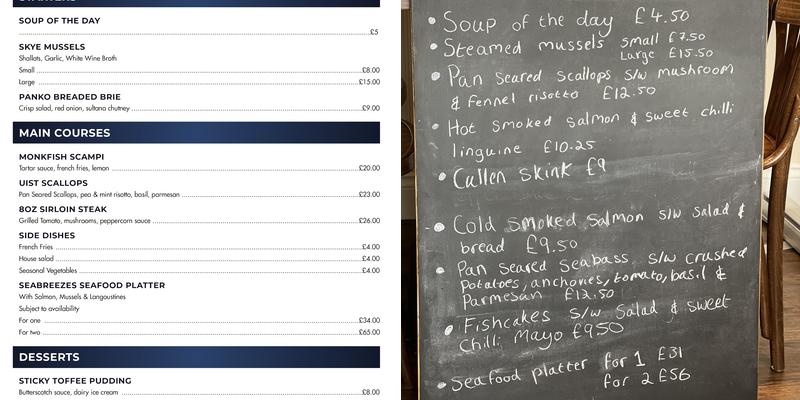 STARTERS
SOUP OF THE DAY
£5
SKYE MUSSELS
Shallots, Garlic, White Wine Broth
Small £8.00
Large £15.00
PANKO BREADED BRIE
Crisp salad, red onion, sultana chutney £9.00
MAIN COURSES
MONKFISH SCAMPI
Tartar sauce, french fries, lemon £20.00
UIST SCALLOPS
Pan Seared Scallops, pea & mint risotto, basil, parmesan £23.00
8OZ SIRLOIN STEAK
Grilled Tomato, mushrooms, peppercorn sauce £26.00
SIDE DISHES
French Fries £4.00
House salad £4.00
Seasonal Vegetables £4.00
SEABREEZES SEAFOOD PLATTER
With Salmon, Mussels & Langoustines
Subject to availability
For one £34.00
For two £65.00
DESSERTS
STICKY TOFFEE PUDDING
Butterscotch sauce, dairy ice cream £8.00
• Soup of the day £4.50
• Steamed mussels small £7.50
Large £15.50
• Pan Seared Scallops s/w mushroom
& fennel risotto £12.50
• Hot smoked salmon & sweet chilli
linguine £10.25
• Cullen Skink £9
• Cold smoked Salmon s/w Salad &
bread £9.50
• Pan Seared Seabass s/w crushed
potatoes, anchovies, tomato, basil &
Parmesan £12.50
• Fishcakes s/w Salad & sweet
Chilli Mayo £950
• Seafood platter for 1 £31
for 2 £56